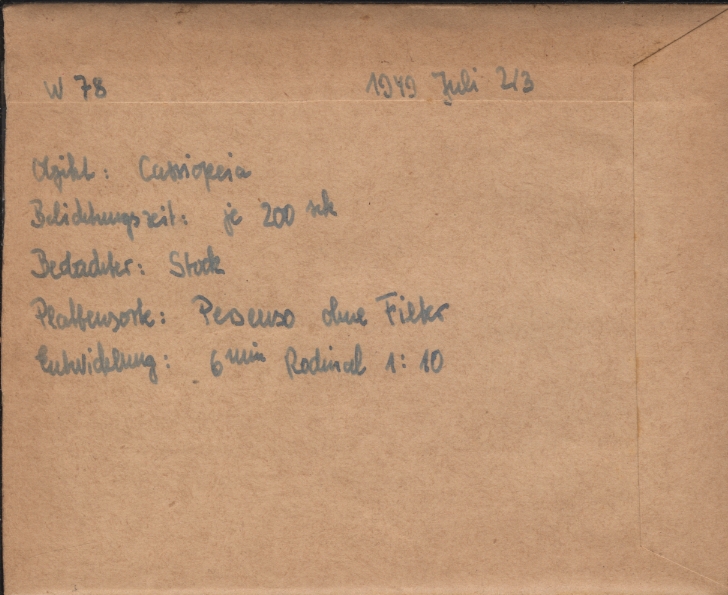 W 78 1949 Juli 2/3
Objekt: Cassiopeia
Belichtungszeit: je 200 sek
Beobachter: Stock
Plattensorte: Persenso ohne Filter
Entwicklung: 6 min Rodinal 1:10